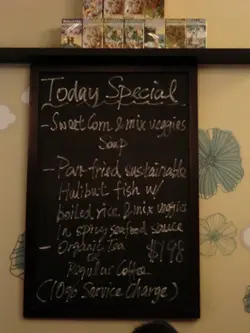 Today Special
- Sweet Corn & mix veggies
Soup
- Pan-fried sustainable
Halibut fish w/
boiled rice & mix veggies
in spicy seafood sauce
- Organic Tea $198
or
Regular Coffee
(10% Service Charge)